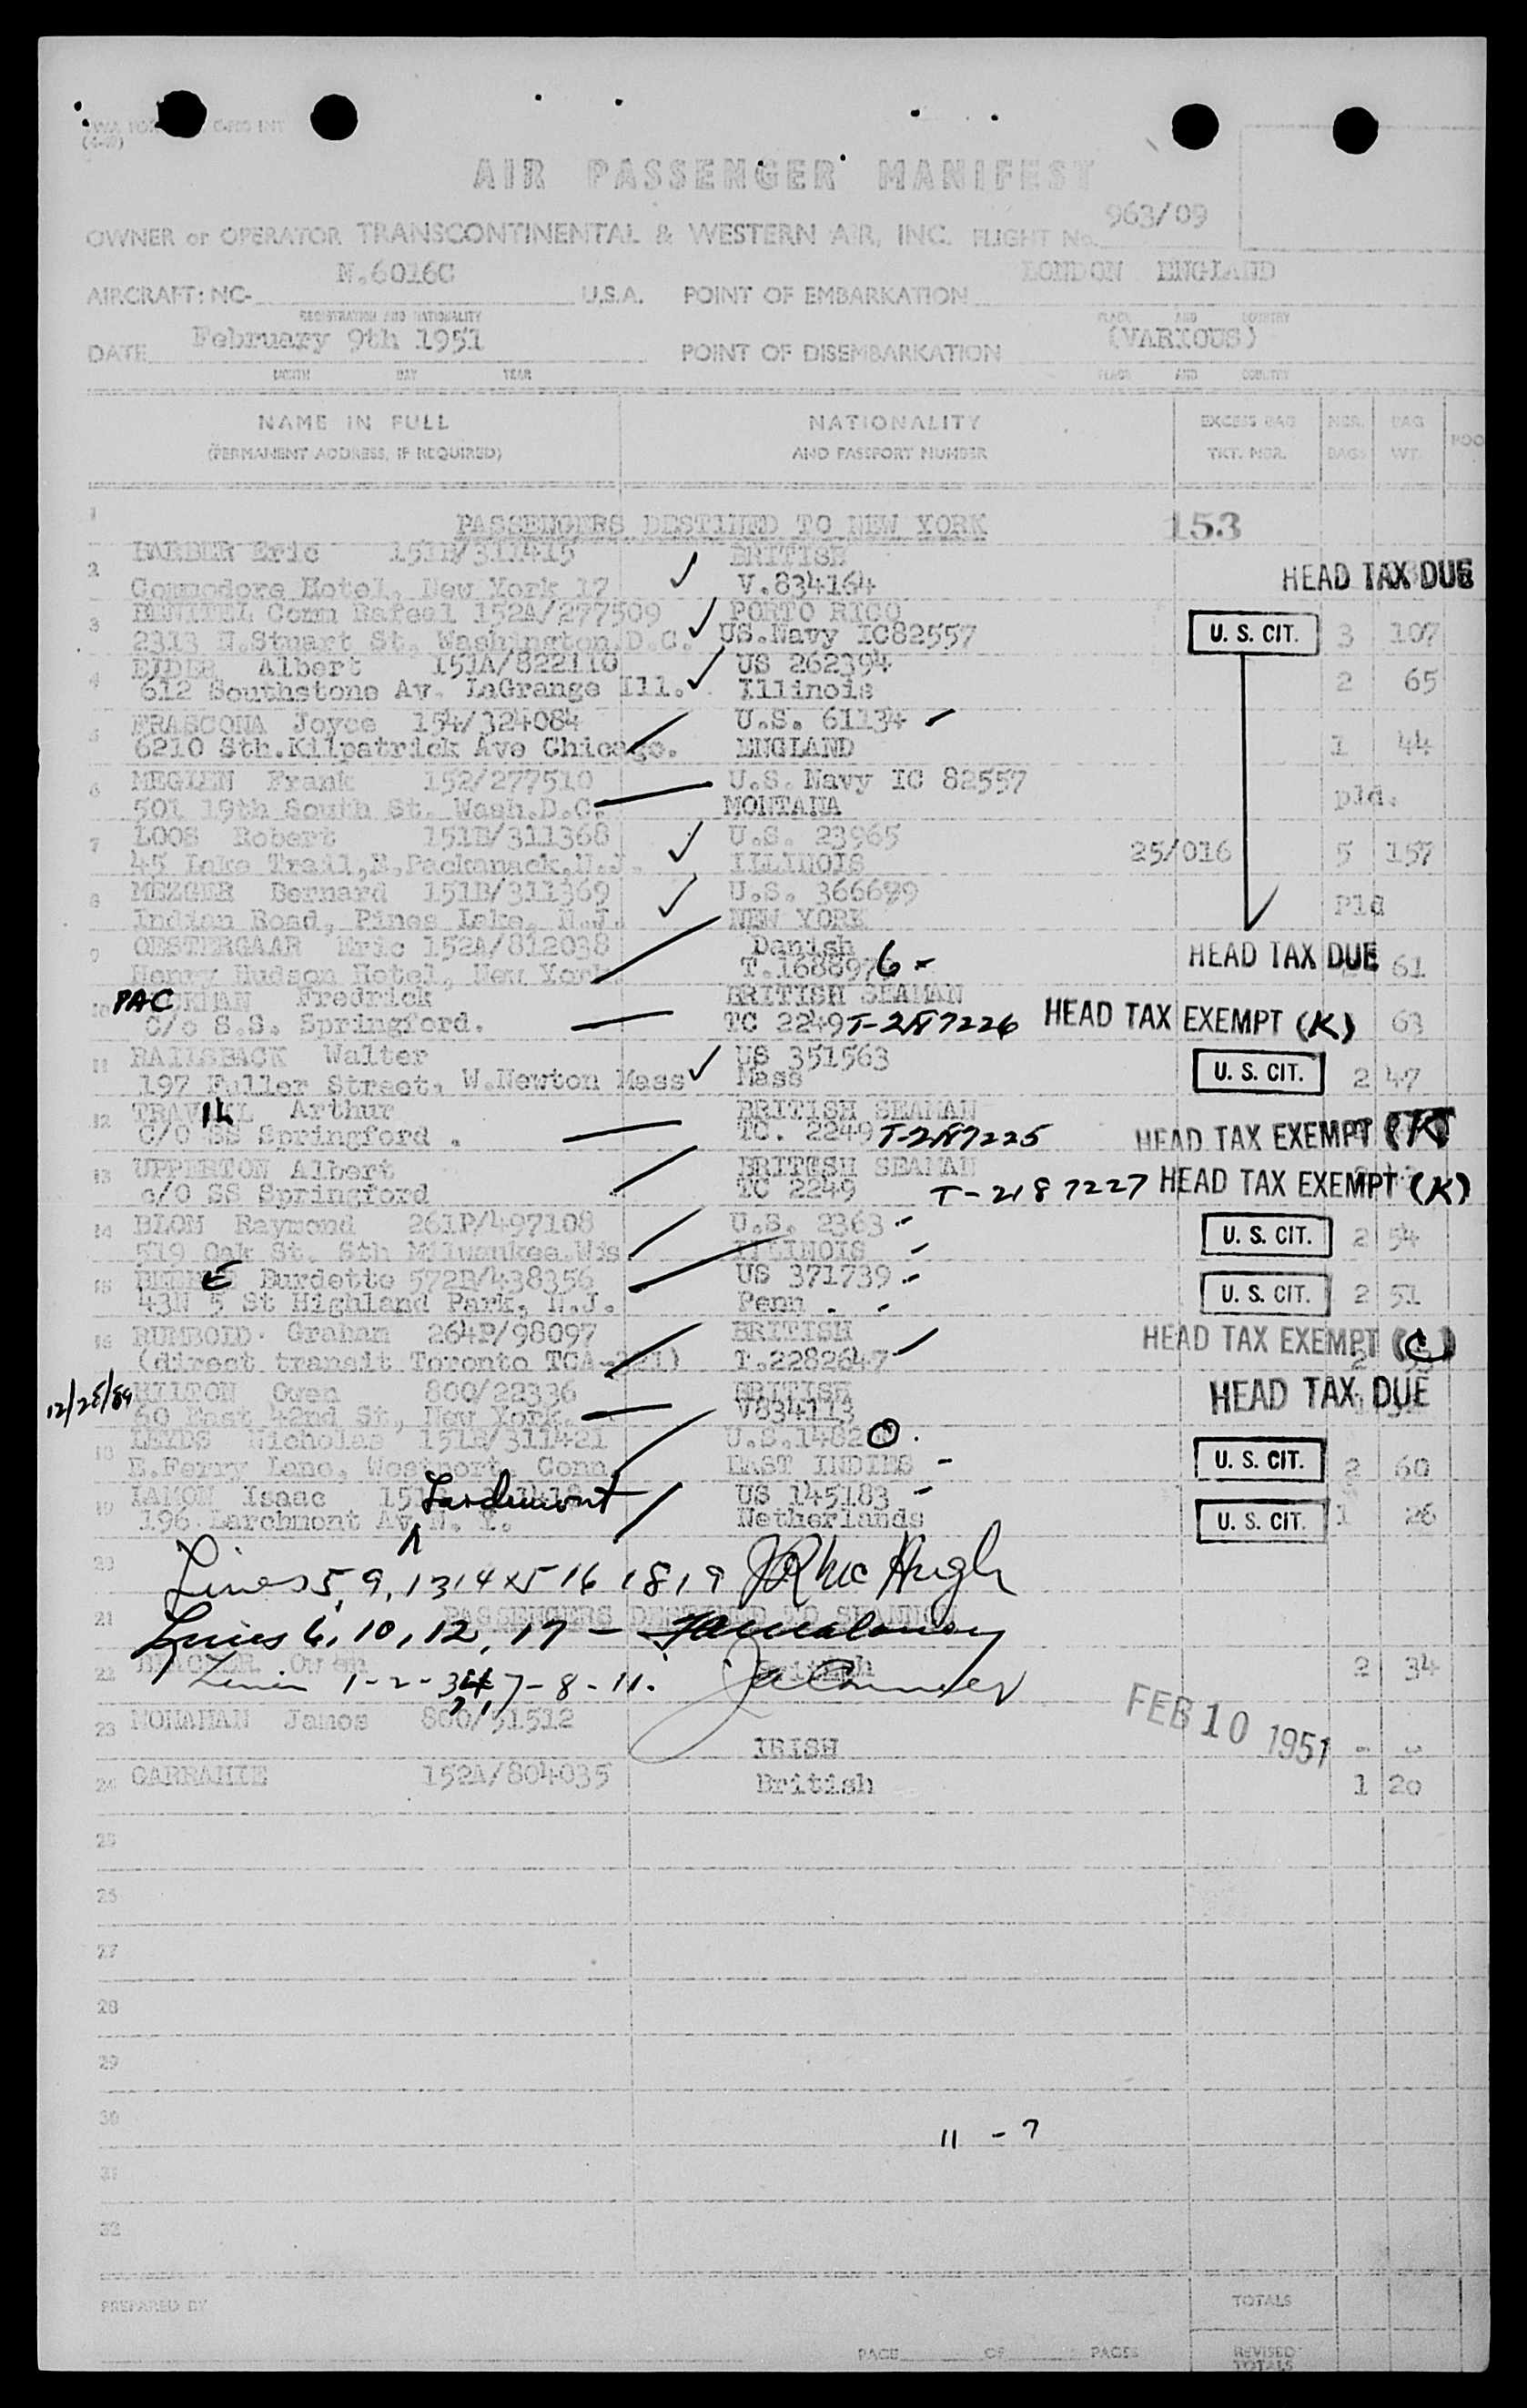 (4-49)
AIR PASSENGER MANIFEST
OWNER or OPERATOR TRANSCONTINENTAL & WESTERN AIR, INC. FLIGHT No. 963/09
AIRCRAFT: NC- N.6016C U.S.A. POINT OF EMBARKATION LONDON ENGLAND
REGISTRATION AND NATIONALITY PLACE AND COUNTRY
DATE February 9th 1951 POINT OF DISEMBARKATION (VARIOUS)
MONTH DAY YEAR PLACE AND COUNTRY
NAME IN FULL NATIONALITY EXCESS BAG NBR. BAG
(PERMANENT ADDRESS, IF REQUIRED) AND PASSPORT NUMBER TKT. NBR. BAGS WT.
1 PASSENGERS DESTINED TO NEW YORK 153
2 BARBER Eric 151B/311415 BRITISH
Commodore Hotel, New York 17 V.834164 HEAD TAX DUE
3 Comm Rafael 152A/277509 PORTO RICO
2313 N.Stuart St, Washington.D.C. US.Navy IC82557 U. S. CIT. 3 107
4 Albert 151A/822110 US 262394
612 Southstone Av. LaGrange Ill. Illinois 2 65
5 FRASCONA Joyce 154/324084 U.S. 61134
6210 Sth.Kilpatrick Ave Chicago. ENGLAND 1 44
6 Frank 152/277510 U.S. Navy IC 82557
501 19th South St. Wash.D.C. MONTANA pld.
7 LOOS Robert 151B/311368 U.S. 23965
45 Lake Trail,E,Packanack,N.J. ILLINOIS 25/016 5 157
8 MEZGER Bernard 151B/311369 U.S. 366689
Indian Road, Pines Lake, N.J. NEW YORK Pld
9 OESTERGAAR Eric 152A/812038 Danish
Henry Hudson Hotel, New York. T.168897 6 HEAD TAX DUE 61
10 PAC Fredrick BRITISH SEAMAN
C/o S.S. Springford. TC 2249 T-2187226 HEAD TAX EXEMPT (K) 63
11 RAILSBACK Walter US 351563
197 Fuller Street, W.Newton Mass Mass U. S. CIT. 2 47
12 Arthur BRITISH SEAMAN
C/O SS Springford . TC. 2249 T-2187225 HEAD TAX EXEMPT (K)
13 UPPERTON Albert BRITISH SEAMAN
c/O SS Springford TC 2249 T-2187227 HEAD TAX EXEMPT (K)
14 BLOM Raymond 261P/497108 U.S. 2363
519 Oak St. Sth Milwaukee.Wis ILLINOIS U. S. CIT. 2 54
15 Burdette 572B/438356 US 371739
43N 5 St Highland Park, N.J. Penn . U. S. CIT. 2 51
16 RUMBOLD. Graham 264P/98097 BRITISH HEAD TAX EXEMPT (C)
(direct transit Toronto TCA-321) T.2282647 2
12/28/89 HILTON Owen 800/22336 BRITISH
60 East 42nd St, New York. V834113 HEAD TAX DUE
18 LEYDS Nicholas 151B/311421 U.S.14820 O.
E.Ferry Lane, Westport, Conn. EAST INDIES U. S. CIT. 2 60
19 Isaac Larchmont US 145183
196 Larchmont Av N. Y. Netherlands U. S. CIT. 1 26
20 Lines 5, 9, 13 14 15 16 18 19 J R McHugh
21 PASSENGERS DESTINED TO SHANNON
Lines 6, 10, 12, 17 -
22 2 34
1-2-3 4, 7-8-11.
FEB 10 1951
23 MONAHAN James 800/51512
IRISH
24 152A/804035 British 1 20
25
26
27
28
29
30
11 - 7
31
32
PREPARED BY TOTALS
PAGE OF PAGES REVISED TOTALS